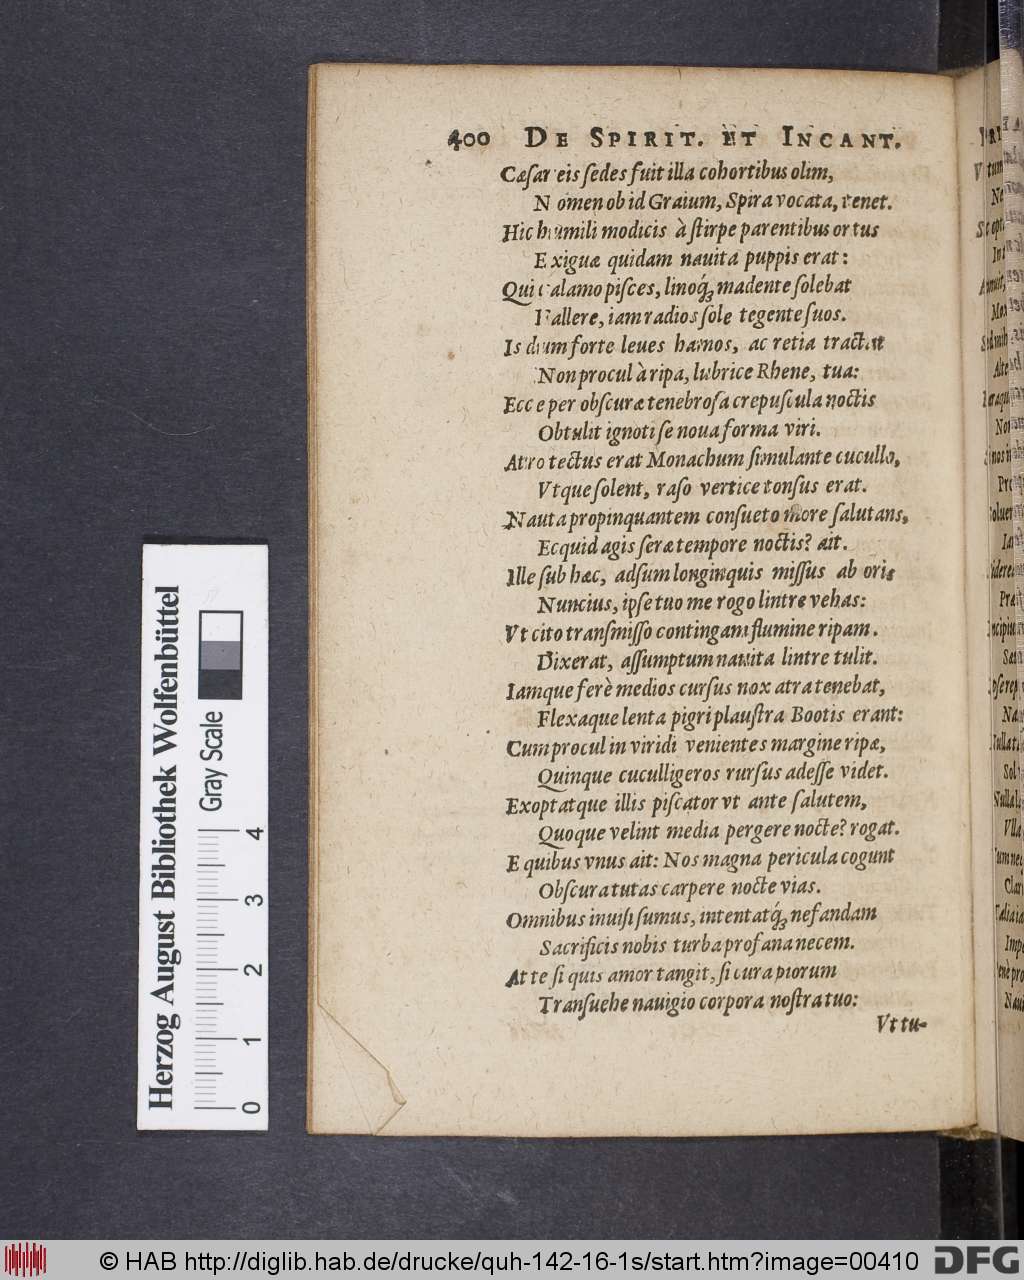 400 DE SPIRIT. ET INCANT.
Cæſareis ſedes fuit illa cohortibus olim,
Nomen ob id Graium, Spira vocata, tenet.
Hic humili modicis à ſtirpe parentibus ortus
Exiguæ quidam nauita puppis erat:
Qui calamo piſces, linoq́ꝫ madente ſolebat
Fallere, iam radios ſole tegente ſuos.
Is dum forte leues hamos, ac retia tractat
Non procul à ripa, lubrice Rhene, tua:
Ecce per obſcuræ tenebroſa crepuſcula noctis
Obtulit ignoti ſe noua forma viri.
Atro tectus erat Monachum ſimulante cucullo,
Vtque ſolent, raſo vertice tonſus erat.
Nauta propinquantem conſueto more ſalutans,
Ecquid agis ſeræ tempore noctis? ait.
Ille ſub hæc, adſum longinquis miſſus ab oris
Nuncius, ipſe tuo me rogo lintre vehas:
Vt cito tranſmiſſo contingam flumine ripam.
Dixerat, aſſumptum nauita lintre tulit.
Iamque ferè medios curſus nox atra tenebat,
Flexaque lenta pigri plauſtra Bootis erant:
Cum procul in viridi venientes margine ripæ,
Quinque cuculligeros rurſus adeſſe videt.
Exoptatque illis piſcator vt ante ſalutem,
Quoque velint media pergere nocte? rogat.
E quibus vnus ait: Nos magna pericula cogunt
Obſcura tutas carpere nocte vias.
Omnibus inuiſi ſumus, intentatq́ꝫ nefandam
Sacrificis nobis turba profana necem.
At te ſi quis amor tangit, ſi cura piorum
Tranſuehe nauigio corpora noſtra tuo:
Vt tu-
Herzog August Bibliothek Wolfenbüttel
Gray Scale
0 1 2 3 4
© HAB http://diglib.hab.de/drucke/quh-142-16-1s/start.htm?image=00410
DFG